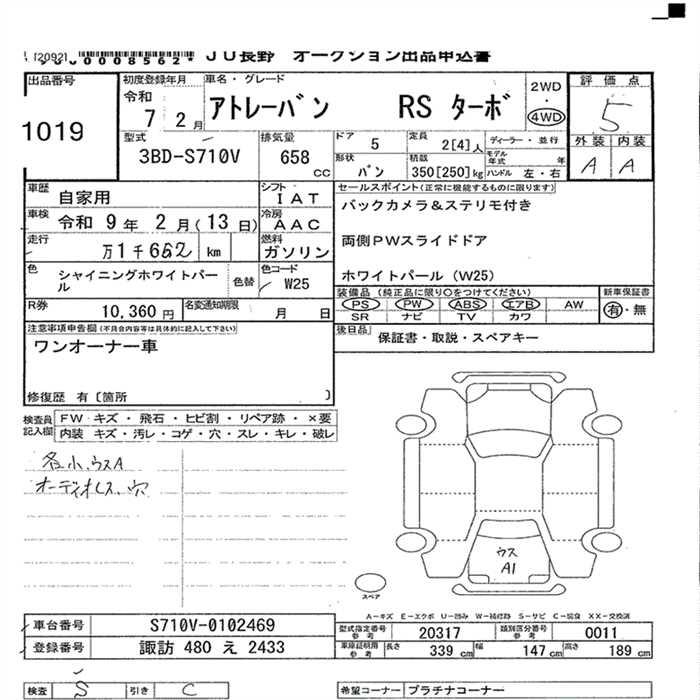 [2092] *5000008562* JU長野 オークション出品申込書
出品番号 1019
初度登録年月 令和 7 2月
車名・グレード アトレーバン RS ターボ
2WD ・ 4WD
評価点 5
外装 内装
A A
型式 3BD-S710V
排気量 658 CC
ドア 5
定員 2[4]人
ディーラー・並行
モデル年式 年
形状 バン
積載 350[250]kg
ハンドル 左・右
車歴 自家用
シフト IAT
車検 令和 9年 2月(13日)
冷房 AAC
走行 万1千652 km
燃料 ガソリン
色 シャイニングホワイトパール
色替
色コード W25
R券 10,360円
名変通知期限 月 日
セールスポイント(正常に機能するものに限ります)
バックカメラ&ステリモ付き
両側PWスライドドア
ホワイトパール (W25)
装備品 (純正品に限り○をつけてください)
PS PW ABS エアB AW
SR ナビ TV カワ
新車保証書 有・無
後日品 保証書・取説・スペアキー
注意事項申告欄(不具合内容等は具体的に記入して下さい)
ワンオーナー車
修復歴 有〔箇所 〕
検査員記入欄
FW キズ・飛石・ヒビ割・リペア跡・×要
内装 キズ・汚レ・コゲ・穴・スレ・キレ・破レ
各小ウスA
オーディオレス、穴
ウス
A1
スペア
A-キズ E-エクボ U-凹み W-補修跡 S-サビ C-腐食 XX-交換済
車台番号 S710V-0102469
登録番号 諏訪 480 え 2433
型式指定番号 参考 20317
類別区分番号 参考 0011
車庫証明用 参考 長さ 339 cm 幅 147 cm 高さ 189 cm
検査 S 引き C
希望コーナー プラチナコーナー